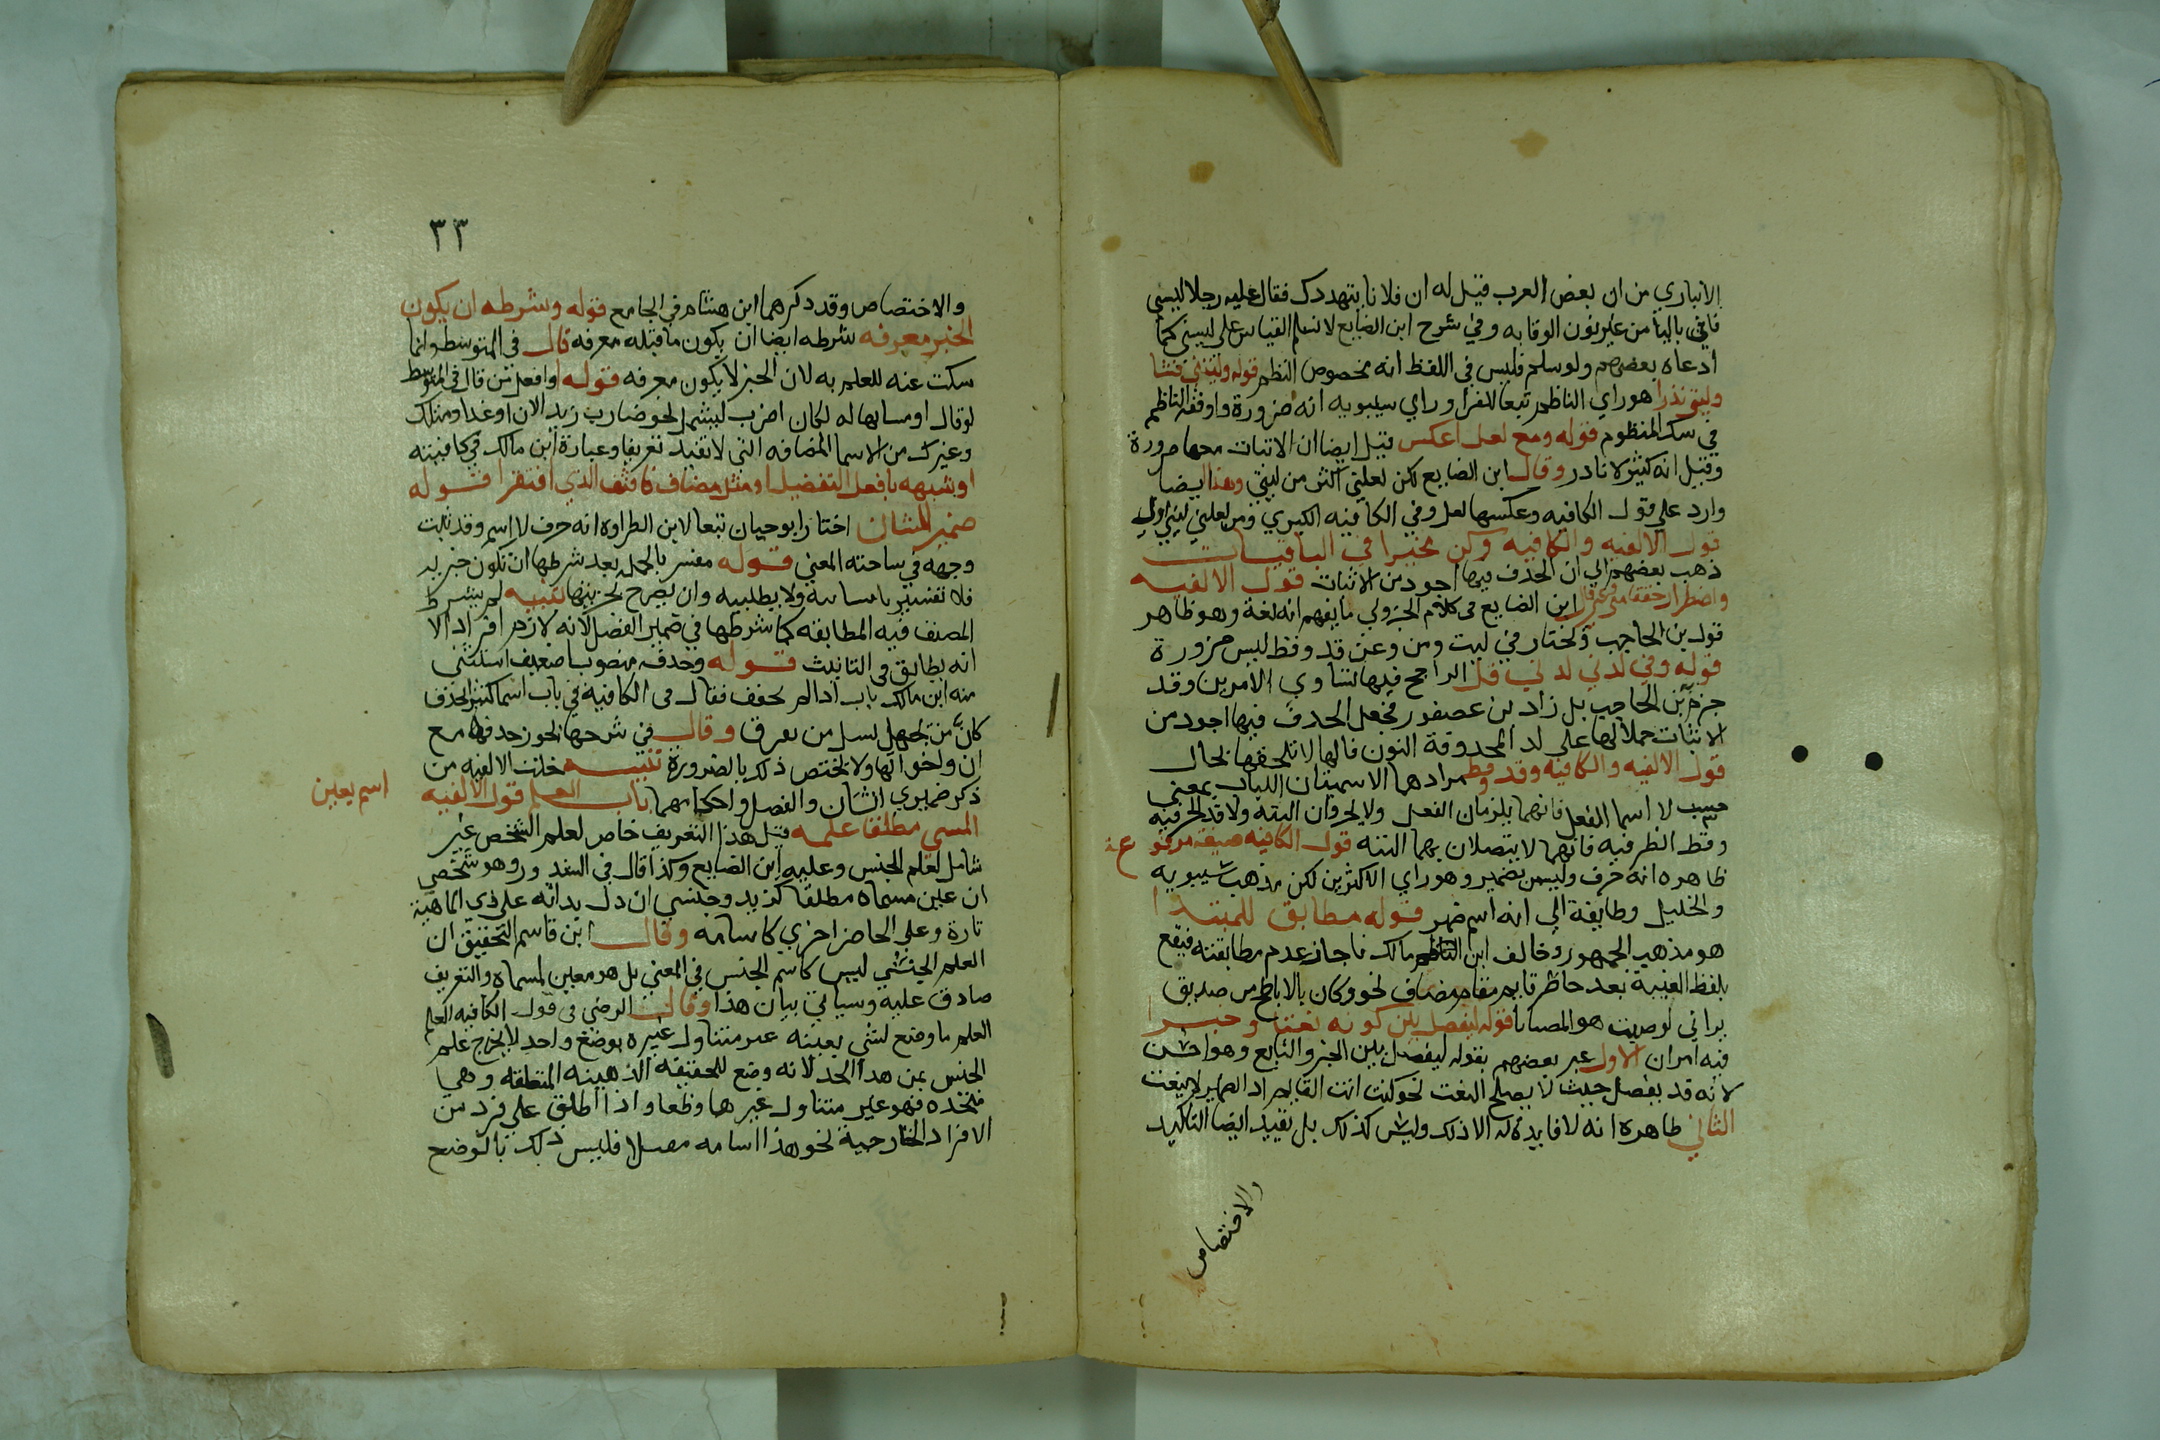 الانباري من ان بعض العرب قيل له ان فلانا يتهددك فقال عليه رجلا ليسي
فاتي بالياء من غير نون الوقايه وفي شرح ابن الضايع لا نسلم القياس على ليسي كما
ادعاه بعضهم ولو سلم فليس في اللفظ انه مخصوص النظم قوله وليتني فشا
وليتي ندرا هو راي الناظم تبعا للفرا وراي سيبويه انه ضرورة واوفقه الناظم
في سك المنظوم قوله ومع لعل اعكس قيل ايضا ان الاثبات معها ضرورة
وقيل انه كثير لا نادر وقال ابن الضايع لكن لعلني اكثر من ليتي وهذا ايضا
وارد علي قول الكافيه وعكسها لعل وفي الكافيه الكبري ومن لعلني ليتي اولى
قول الالفيه والكافيه وكن مخيرا في الباقيات
ذهب بعضهم الي ان الحذف فيها اجود من الاثبات قول الالفيه
واضطرارا خففا مني وعني قال ابن الضايع في كلام الجزولي ما يفهم انه لغة وهو ظاهر
قول بن الحاجب والمختار في ليت ومن وعن قد وقط ليس ضرورة
قوله وفي لدني لدني قل الراجح فيها تساوي الامرين وقد
جزم بن الحاجب بل زاد بن عصفور فجعل الحذف فيها اجود من
الاثبات حملا لها على لد المحذوفة النون فانها لا تلحقها بحال
قول الالفيه والكافيه وقد وقط مرادها الاسميتان اللتان بمعني
حسب لا اسما الفعل فانهما يلزمان الفعل ولا الحرفان البته ولا قد الحرفيه
وقط الظرفيه فانهما لا يتصلان بهما البته قول الكافيه صيغة مرفوع
ظاهره انه حرف وليس بضمير وهو راي الاكثرين لكن مذهب سيبويه
والخليل وطايفة الي انه اسم ضمر قوله مطابق للمبتدا
هو مذهب الجمهور وخالف ابن الناظم مالك فاجاز عدم مطابقته فيقع
بلفظ الغيبة بعد حاظر قايم مقام مضاف نحو وكان بالاباطح من صديق
يراني لو صيبت هو المصابا قوله ليفصل بين كونه نعتا وخبرا
فيه امران الاول عبر بعضهم بقوله ليفصل بين الخبر والتابع وهو احسن
لانه قد يفصل حيث لا يصلح النعت نحو كنت انت القايم اذ الضمير لا ينعت
الثاني ظاهره انه لا فايدة له الا ذلك وليس كذلك بل يفيد ايضا التاكيد
والاختصاص
٣٣
والاختصاص وقد ذكرهما ابن هشام في الجامع قوله وشرطه ان يكون
الخبر معرفه شرطه ايضا ان يكون ما قبله معرفه قال في المتوسط وانما
سكت عنه للعلم به لان الخبر لا يكون معرفه قوله او افعل من قال في المتوسط
لو قال او مشابها له لكان اضرب ليشمل نحو ضارب زيد الان او غدا ومثلك
وغيرك من الاسما المضافه التي لا تفيد تعريفا وعبارة ابن مالك في كافيته
او شبهه بافعل التفضيل او مثل مضاف فاقتف الذي اقتفرا قوله
ضمير الشان اختار ابو حيان تبعا لابن الطراوه انه حرف لا اسم وقد بينت
وجهه في ساحته المعني قوله مفسر بالجمله بعد شرطها ان تكون خبريه
فلا تفسير بانشائيه ولا بطلبيه وان يصرح بجزئيها تنبيه لم يشرط
المصنف فيه المطابقه كما شرطها في ضمير الفصل لانه لازم افراد الا
انه يطابق في التانيث قوله وحذفه منصوبا ضعيف استثني
منه ابن مالك باب اذا لم تخفف فقال في الكافية في باب اسما كثير الحذف
كان من يجهل يسل من يعرف وقال في شرحها يجوز حذفها مع
ان واخواتها ولا يختص ذلك بالضرورة تنبيه خلت الالفيه من
ذكر ضميري الشان والفصل واحكامهما باب العلم قول الالفيه
اسم يعين
المسمي مطلقا علمه قيل هذا التعريف خاص لعلم الشخص غير
شامل لعلم الجنس وعليه ابن الضايع وكذا قال في الشذور وهو شخصي
ان عين مسماه مطلقا كزيد وجنسي ان دل بذاته على ذي الماهية
تارة وعلي الحاضر اخري كاسامه وقال ابن قاسم التحقيق ان
العلم الجنسي ليس كاسم الجنس في المعني بل هو معين لمسماه والتعريف
صادق عليه وسياتي بيان هذا وقال الرضي في قول الكافيه العلم
العلم ما وضع لشي بعينه غير متناول غيره بوضع واحد لا يخرج علم
الجنس عن هذا الحد لانه وضع للحقيقة الذهنيه المتعلقه وهي
متحده فهو غير متناول غيرها وضعا واذا اطلق علي فرد من
الافراد الخارجية نحو هذا اسامه مقبلا فليس ذلك بالوضع